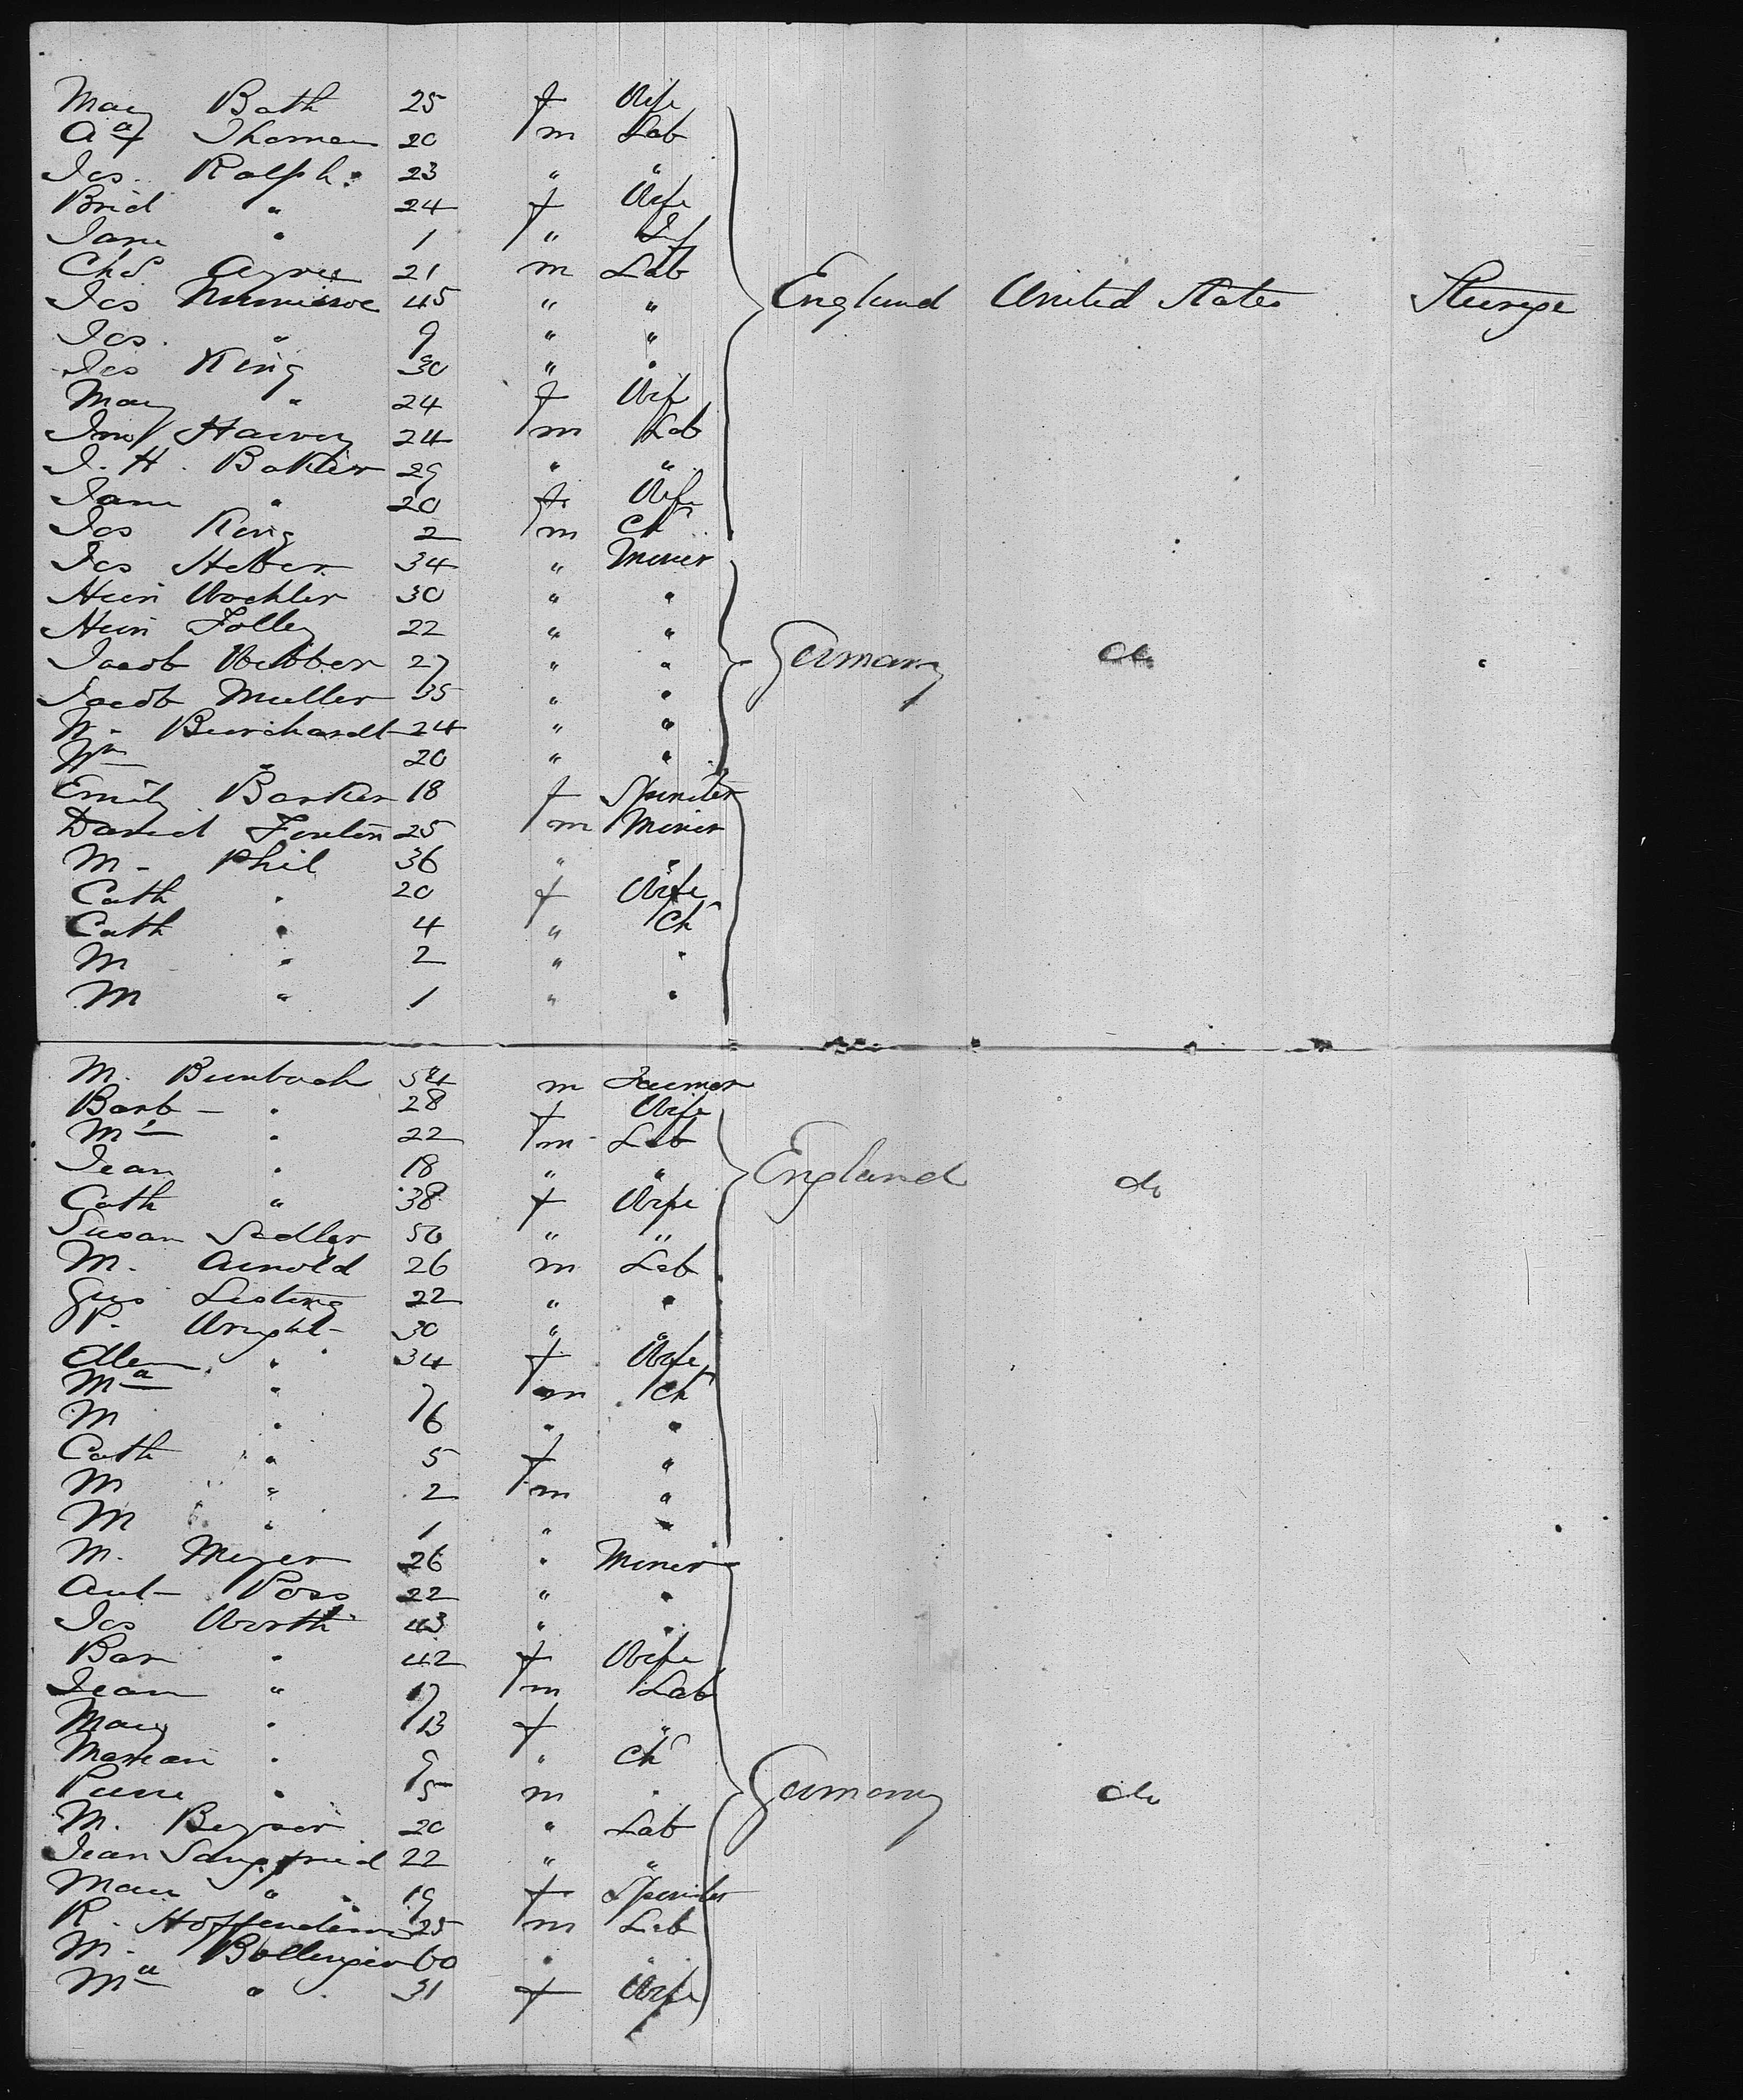 Mary Bath 25 f Wife
Aa Thomas 20 m Lab
Jas. Ralph: 23 " "
Brid " 24 f Wife
Jane " 1 " Inf
Chs Ayres 21 m Lab
Jas 45 " "
Jas. " 9 " "
Jas King 30 " "
Mary " 24 f Wife
Jno Harvey 24 m Lab
J. H. Baker 29 " "
Jane " 20 f Wife
Jas King 2 m Ch
Jas Heber 34 " Miner
England United States Steerage
Heiri Wachler 30 " "
Heiri Folley 22 " "
Jacob Webber 27 " "
Jacob Muller 35 " "
W. Burchardt 24 " "
Wm " 20 " "
Germany do "
Emily Barker 18 f Spinster
David Fenton 25 m Miner
M. Phil 36 " "
Cath " 20 f Wife
Cath " 4 " Ch
M " 2 " "
M " 1 " "
M. Bumbach 54 m Farmer
Barb " 28 f Wife
M " 22 m Lab
Jean " 18 " "
Cath " 38 f Wife
Susan Sadler 50 " "
M. Arnold 26 m Lab
England do
Gus Listing 22 " "
P. Wright 30 " "
Ellen " 34 f Wife
Ma " 7 m Ch
M " 6 " "
Cath " 5 f "
M " 2 m "
M " 1 " "
M. Meyer 26 " Miner
Ant Poss 22 " "
Jas Worth 43 " "
Bar " 42 f Wife
Jean " 17 m Lab
Mary " 13 f "
Marian " 9 " Ch
Pierre " 5 m "
Germany do
M. Beyser 20 " Lab
Jean 22 " "
Marie " 19 f Spinster
R. 25 m Lab
M. Bollenger 60 " "
Ma " 31 f Wife